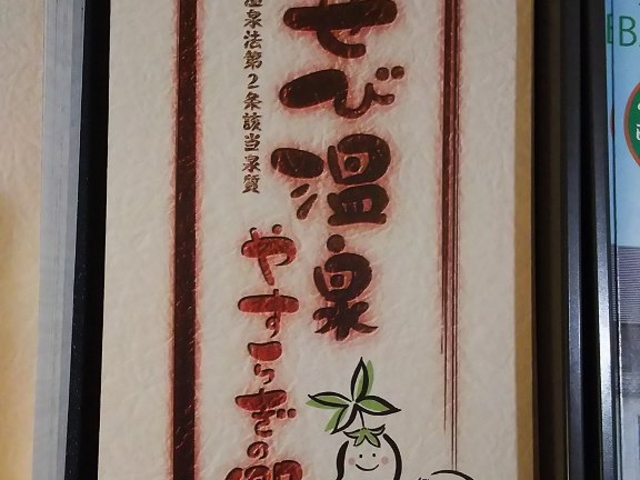 せび温泉
温泉法第2条該当泉質
やすらぎの郷